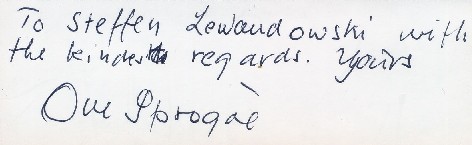 To Steffen Lewandowski with
the kindest regards. Yours
Ove Sprogøe